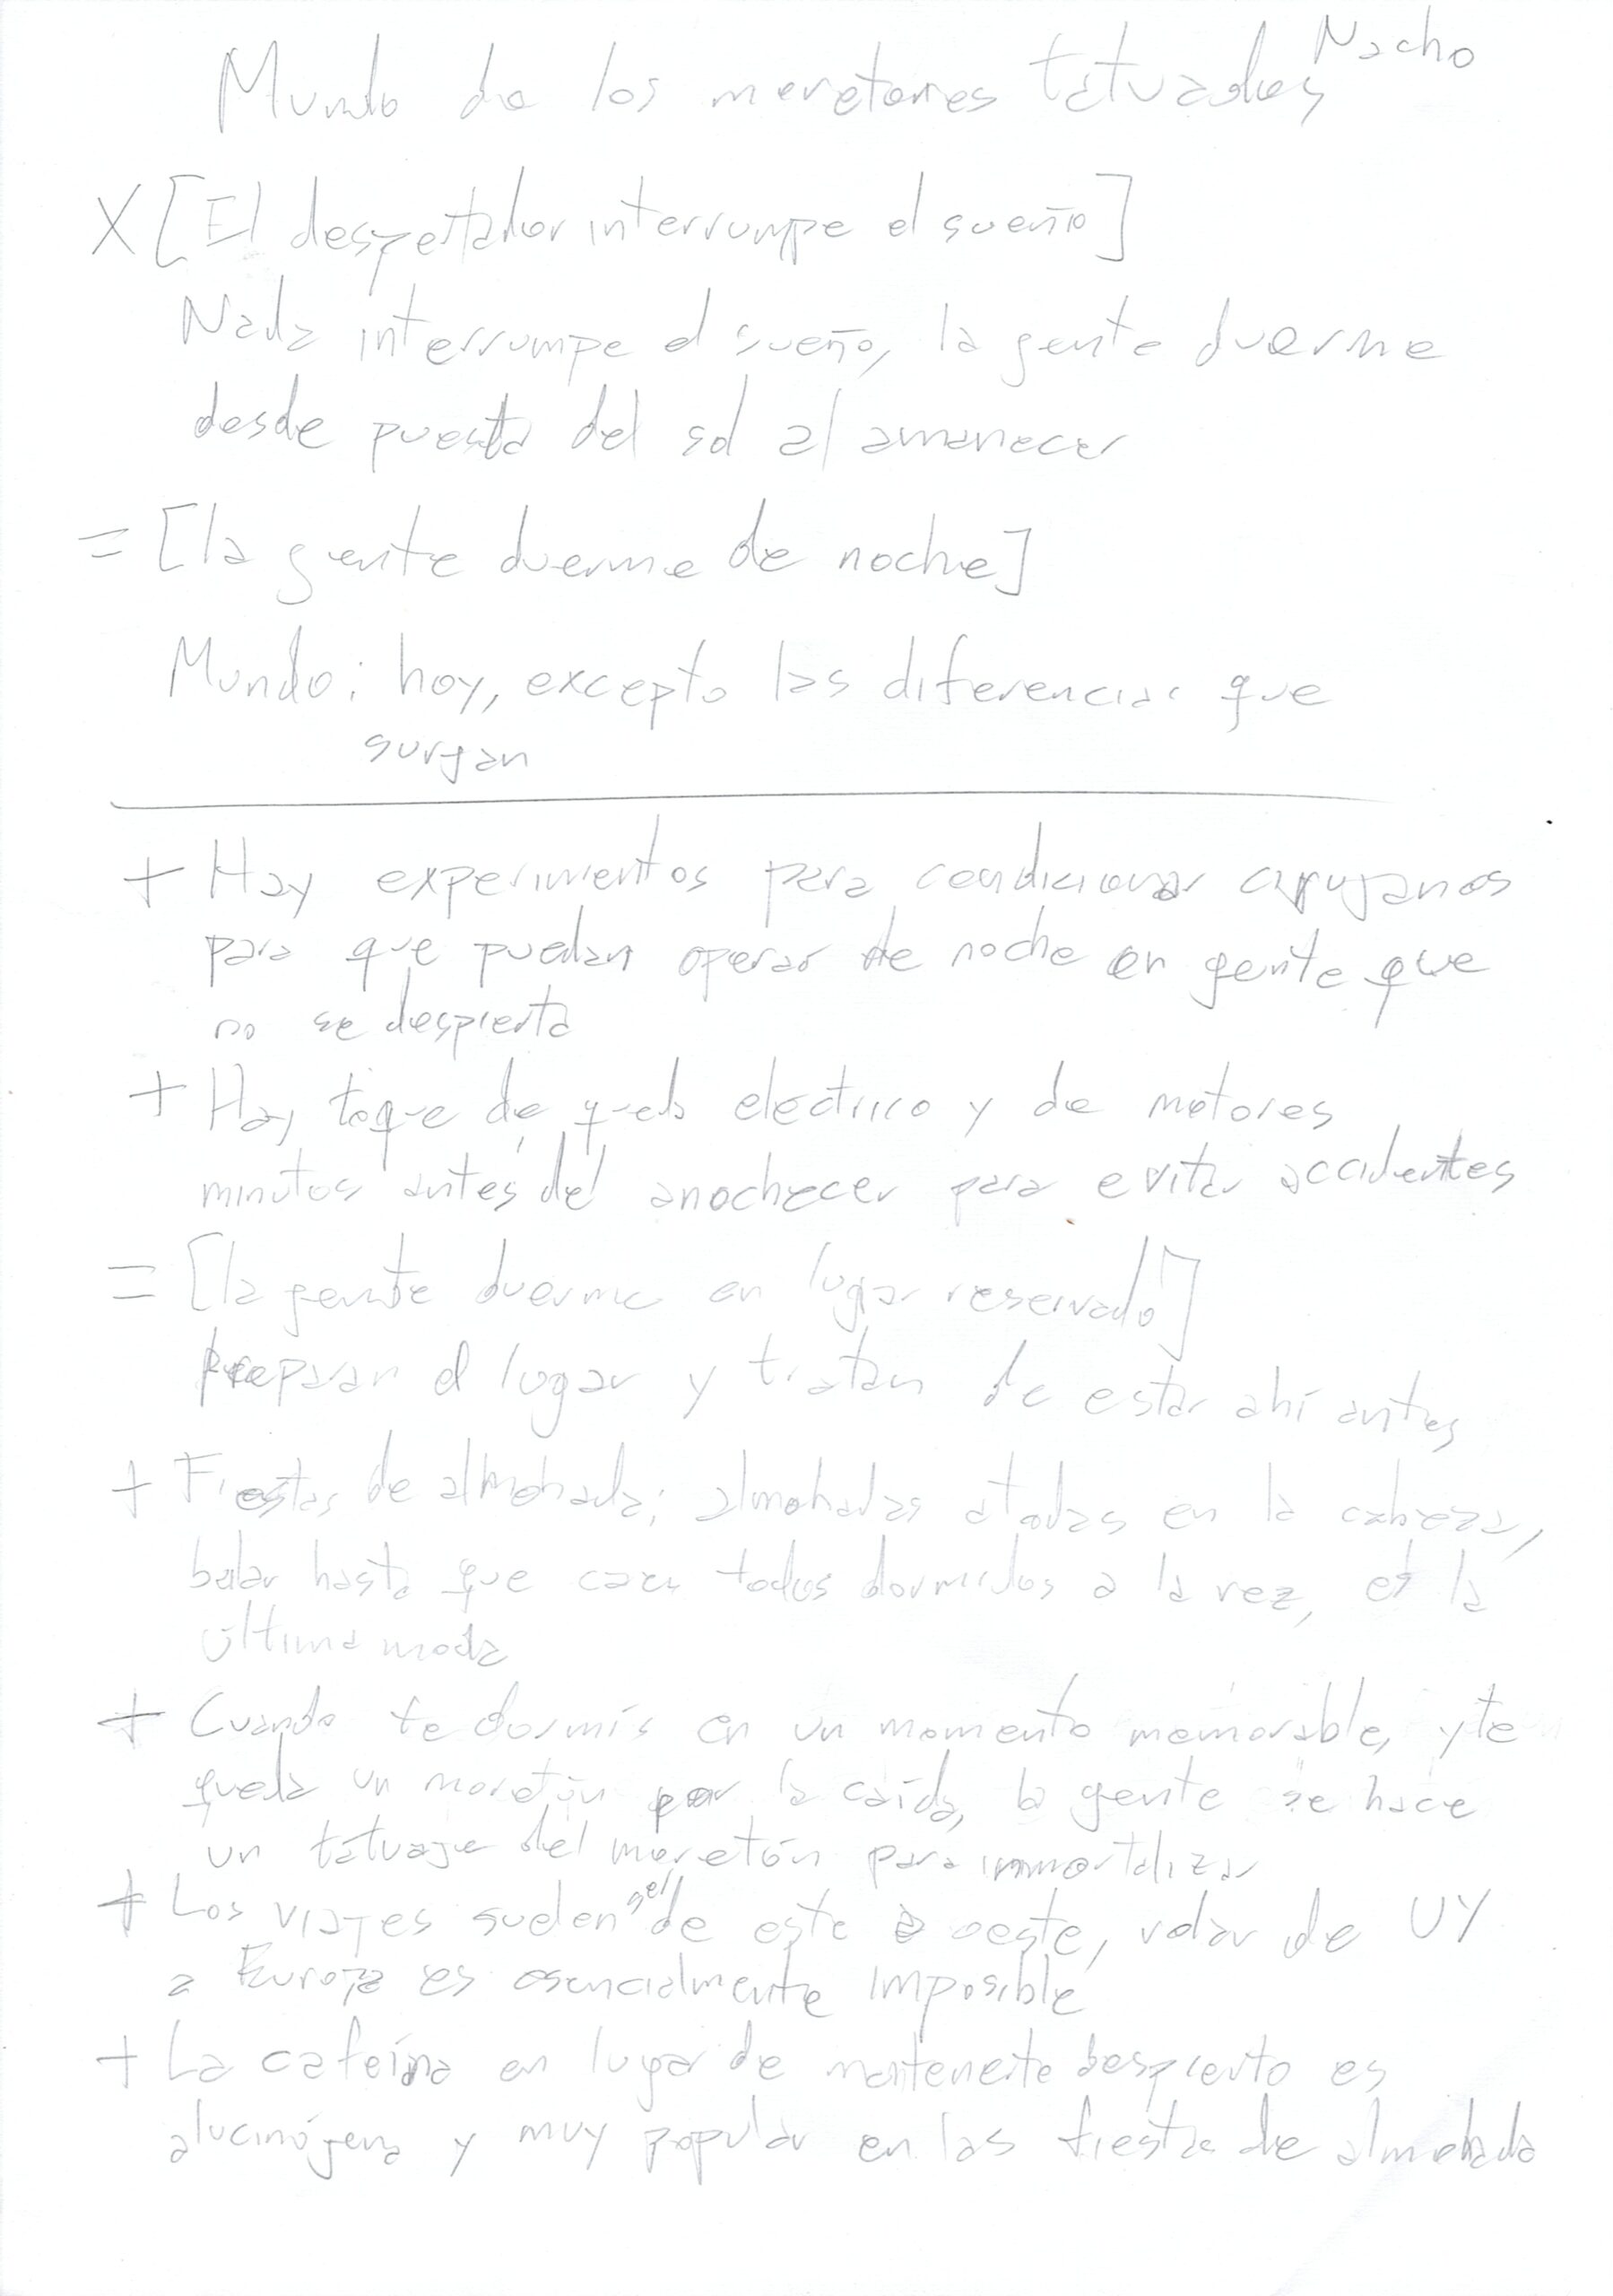 Nacho
Mundo de los moretones tatuados
X [El despertador interrumpe el sueño]
Nada interrumpe el sueño, la gente duerme
desde puesta del sol al amanecer
= [la gente duerme de noche]
Mundo: hoy, excepto las diferencias que
surjan
+ Hay experimentos para condicionar cirujanos
para que puedan operar de noche en gente que
no se despierta
+ Hay toque de queda eléctrico y de motores
minutos antes del anochecer para evitar accidentes
= [la gente duerme en lugar reservado]
Preparan el lugar y tratan de estar ahí antes
+ Fiestas de almohada; almohadas atadas en la cabeza,
bailar hasta que caen todos dormidos a la vez, es la
última moda
+ Cuando te dormís en un momento memorable, y te
queda un moretón por la caída, la gente se hace
un tatuaje del moretón para inmortalizar
+ Los viajes suelen ser de este a oeste, volar de UY
a Europa es esencialmente imposible
+ La cafeína en lugar de mantenerte despierto es
alucinógena y muy popular en las fiestas de almohada